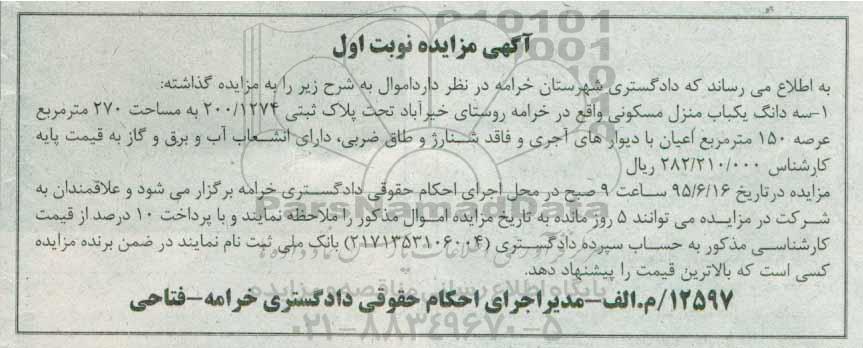 آگهی مزایده نوبت اول
به اطلاع می رساند که دادگستری شهرستان خرامه در نظر دارداموال به شرح زیر را به مزایده گذاشته:
۱-سه دانگ یکباب منزل مسکونی واقع در خرامه روستای خیرآباد تحت پلاک ثبتی ۲۰۰/۱۲۷۴ به مساحت ۲۷۰ مترمربع
عرصه ۱۵۰ مترمربع اعیان با دیوار های آجری و فاقد شنارژ و طاق ضربی، دارای انشعاب آب و برق و گاز به قیمت پایه
کارشناس ۲۸۲/۲۱۰/۰۰۰ ریال
مزایده درتاریخ ۹۵/۶/۱۶ ساعت ۹ صبح در محل اجرای احکام حقوقی دادگستری خرامه برگزار می شود و علاقمندان به
شرکت در مزایده می توانند ۵ روز مانده به تاریخ مزایده اموال مذکور را ملاحظه نمایند و با پرداخت ۱۰ درصد از قیمت
کارشناسی مذکور به حساب سپرده دادگستری (۲۱۷۱۳۵۳۱۰۶۰۰۴) بانک ملی ثبت نام نمایند در ضمن برنده مزایده
کسی است که بالاترین قیمت را پیشنهاد دهد.
۱۲۵۹۷/م.الف-مدیراجرای احکام حقوقی دادگستری خرامه-فتاحی
ParsNamadData
پایگاه اطلاع رسانی مناقصه و مزایده
۰۲۱-۸۸۳۴۹۶۷۰-۵